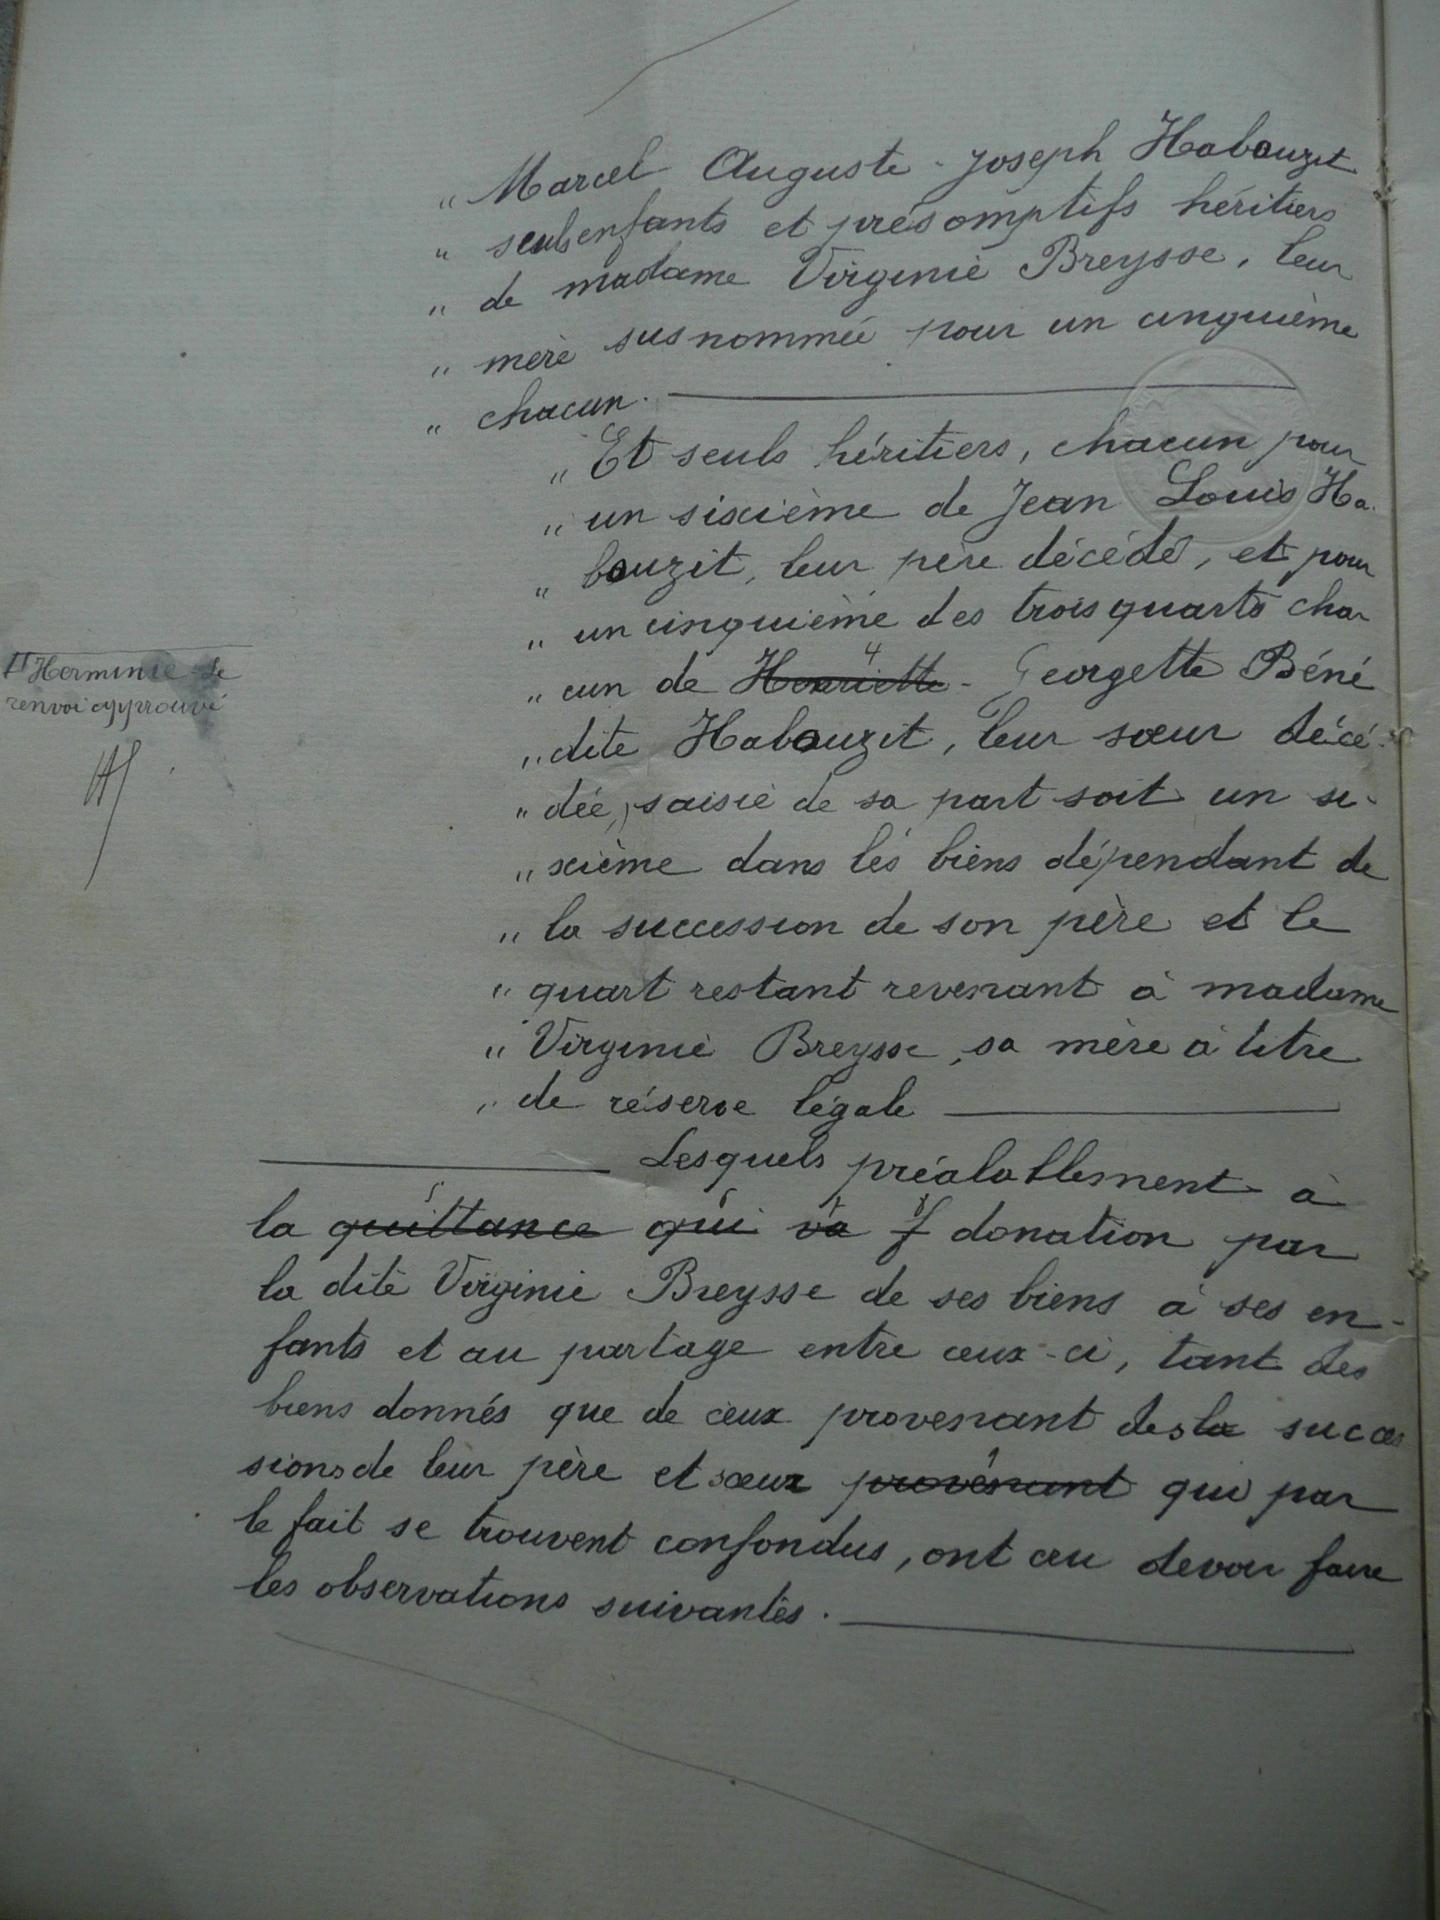 „ Marcel Auguste-Joseph Habouzit
„ seuls enfants et présomptifs héritiers
„ de madame Virginie Breysse, leur
„ mère susnommée pour un cinquième
„ chacun.
„ Et seuls héritiers, chacun pour
„ un sixième de Jean Louis Ha-
„ bouzit, leur père décédé, et pour
„ un cinquième des trois quarts cha
„ cun de Henriette - Georgette Béné
4
„ dite Habouzit, leur sœur décé-
„ dée, saisie de sa part soit un si-
„ xième dans les biens dépendant de
„ la succession de son père et le
„ quart restant revenant à madame
„ Virginie Breysse, sa mère à titre
„ de réserve légale
Herminie Le
renvoi approuvé
Lesquels préalablement à
la quittance qui va f donation par
la dite Virginie Breysse de ses biens à ses en-
fants et au partage entre ceux-ci, tant des
biens donnés que de ceux provenant des la succes
sions de leur père et sœur provenant qui par
le fait se trouvent confondus, ont cru devoir faire
les observations suivantes.